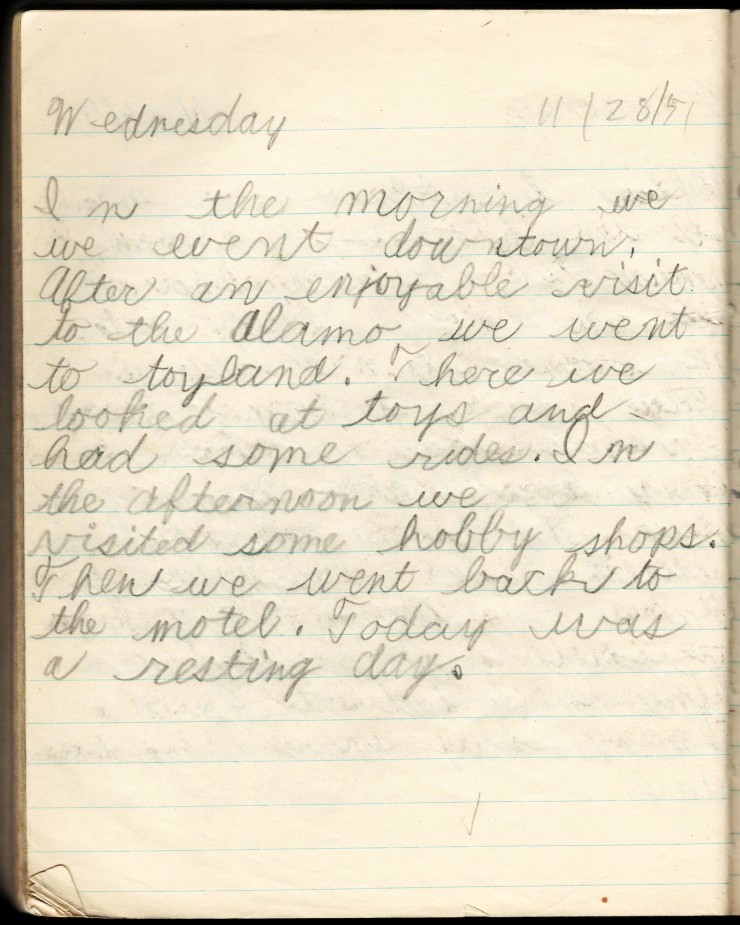 Wednesday 11/28/51
In the morning we
we event downtown.
After an enjoyable visit
to the Alamo we went
to toyland. There we
looked at toys and
had some rides. In
the afternoon we
visited some hobby shops.
Then we went back to
the motel. Today was
a resting day.